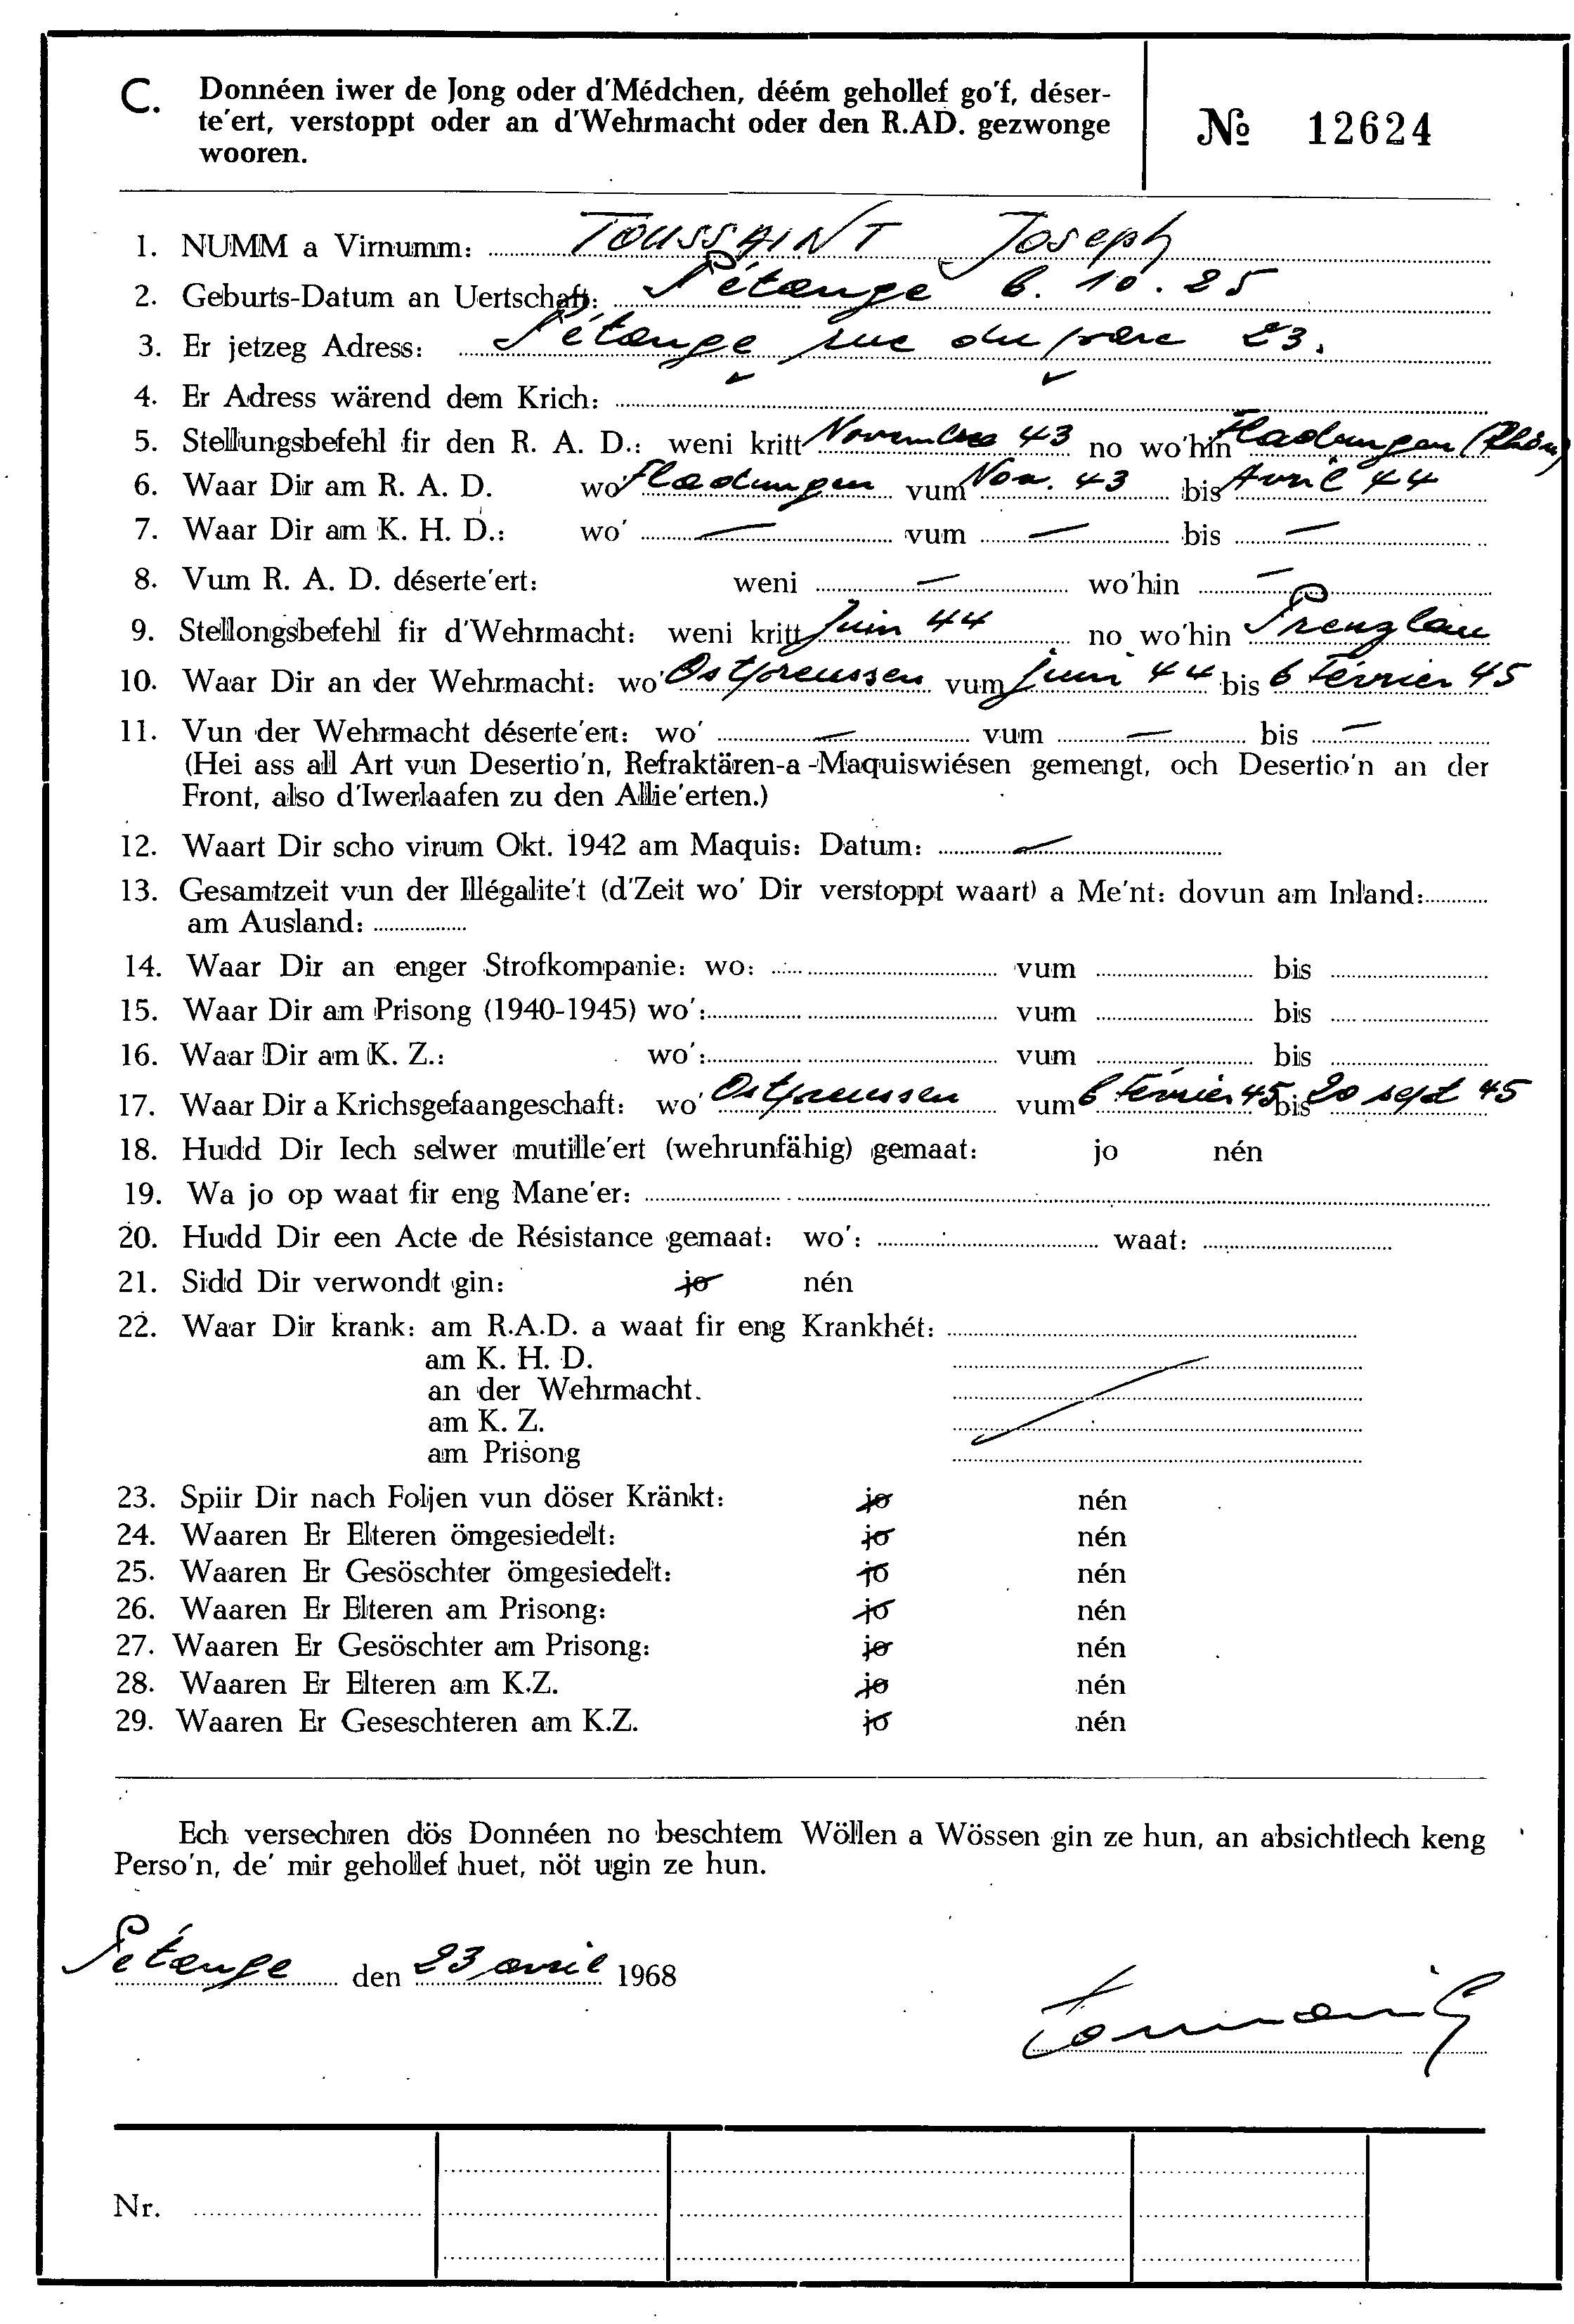 C. Donnéen iwer de Jong oder d'Médchen, déém gehollef go'f, déser-
te'ert, verstoppt oder an d'Wehrmacht oder den R.AD. gezwonge
wooren.
№ 12624
1. NUMM a Virnumm: TOUSSAINT Joseph
2. Geburts-Datum an Uertschaft: Pétange 6. 10. 25
3. Er jetzeg Adress: Pétange rue du parc 23.
4. Er Adress wärend dem Krich:
5. Stellungsbefehl fir den R. A. D.: weni kritt Novembre 43 no wo'hin Fladungen (Rhön)
6. Waar Dir am R. A. D. wo' Fladungen vum Nov. 43 bis Avril 44
7. Waar Dir am K. H. D.: wo' — vum — bis —
8. Vum R. A. D. déserte'ert: weni — wo'hin —
9. Stellongsbefehl fir d'Wehrmacht: weni kritt Juin 44 no wo'hin Prenzlau
10. Waar Dir an der Wehrmacht: wo' Ostpreussen vum juin 44 bis 6 février 45
11. Vun der Wehrmacht déserte'ert: wo' — vum — bis —
(Hei ass all Art vun Desertio'n, Refraktären-a-Maquiswiésen gemengt, och Desertio'n an der
Front, also d'Iwerlaafen zu den Allie'erten.)
12. Waart Dir scho virum Okt. 1942 am Maquis: Datum: —
13. Gesamtzeit vun der Illégalite't (d'Zeit wo' Dir verstoppt waart) a Me'nt: dovun am Inland:
am Ausland:
14. Waar Dir an enger Strofkompanie: wo: vum bis
15. Waar Dir am Prisong (1940-1945) wo': vum bis
16. Waar Dir am K. Z.: wo': vum bis
17. Waar Dir a Krichsgefaangeschaft: wo' Ostpreussen vum 6 février 45 bis 20 sept 45
18. Hudd Dir Iech selwer mutille'ert (wehrunfähig) gemaat: jo nén
19. Wa jo op waat fir eng Mane'er:
20. Hudd Dir een Acte de Résistance gemaat: wo': waat:
21. Sidd Dir verwondt gin: jo nén
22. Waar Dir krank: am R.A.D. a waat fir eng Krankhét:
am K. H. D.
an der Wehrmacht.
am K. Z.
am Prisong
23. Spiir Dir nach Foljen vun döser Kränkt: jo nén
24. Waaren Er Elteren ömgesiedelt: jo nén
25. Waaren Er Gesöschter ömgesiedelt: jo nén
26. Waaren Er Elteren am Prisong: jo nén
27. Waaren Er Gesöschter am Prisong: jo nén
28. Waaren Er Elteren am K.Z. jo nén
29. Waaren Er Geseschteren am K.Z. jo nén
Ech versechren dös Donnéen no beschtem Wöllen a Wössen gin ze hun, an absichtlech keng
Perso'n, de' mir gehollef huet, nöt ugin ze hun.
Pétange den 23 avril 1968
Nr.